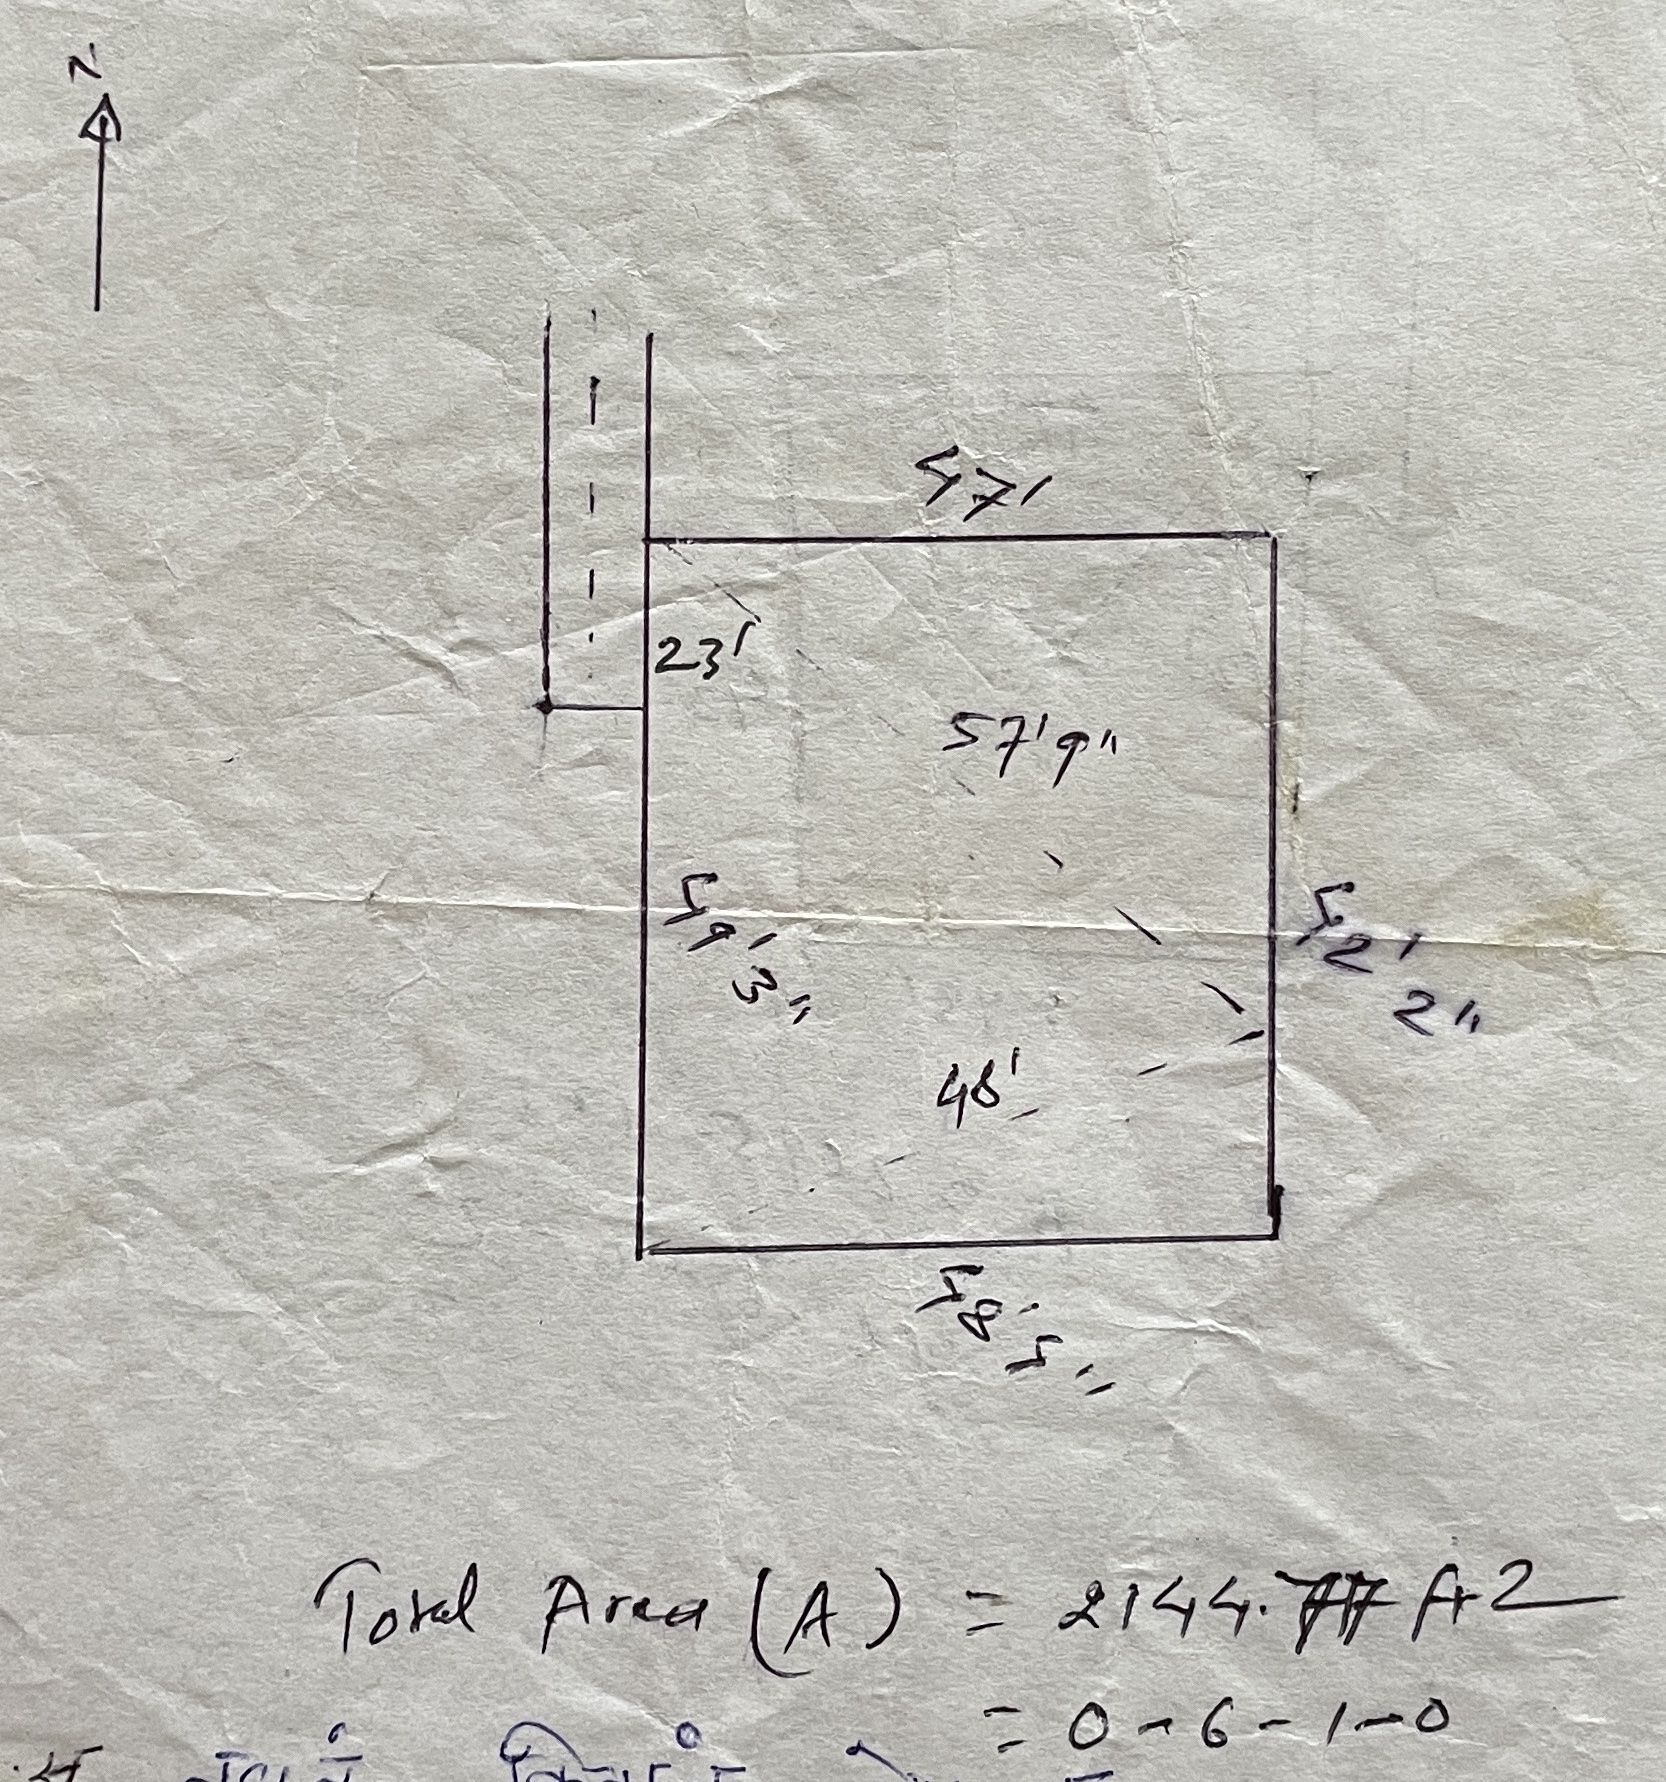 N
47'
23'
57'9"
59'3"
52'2"
48'
58'5"
Total Area (A) = 2144.77 ft2
= 0-6-1-0